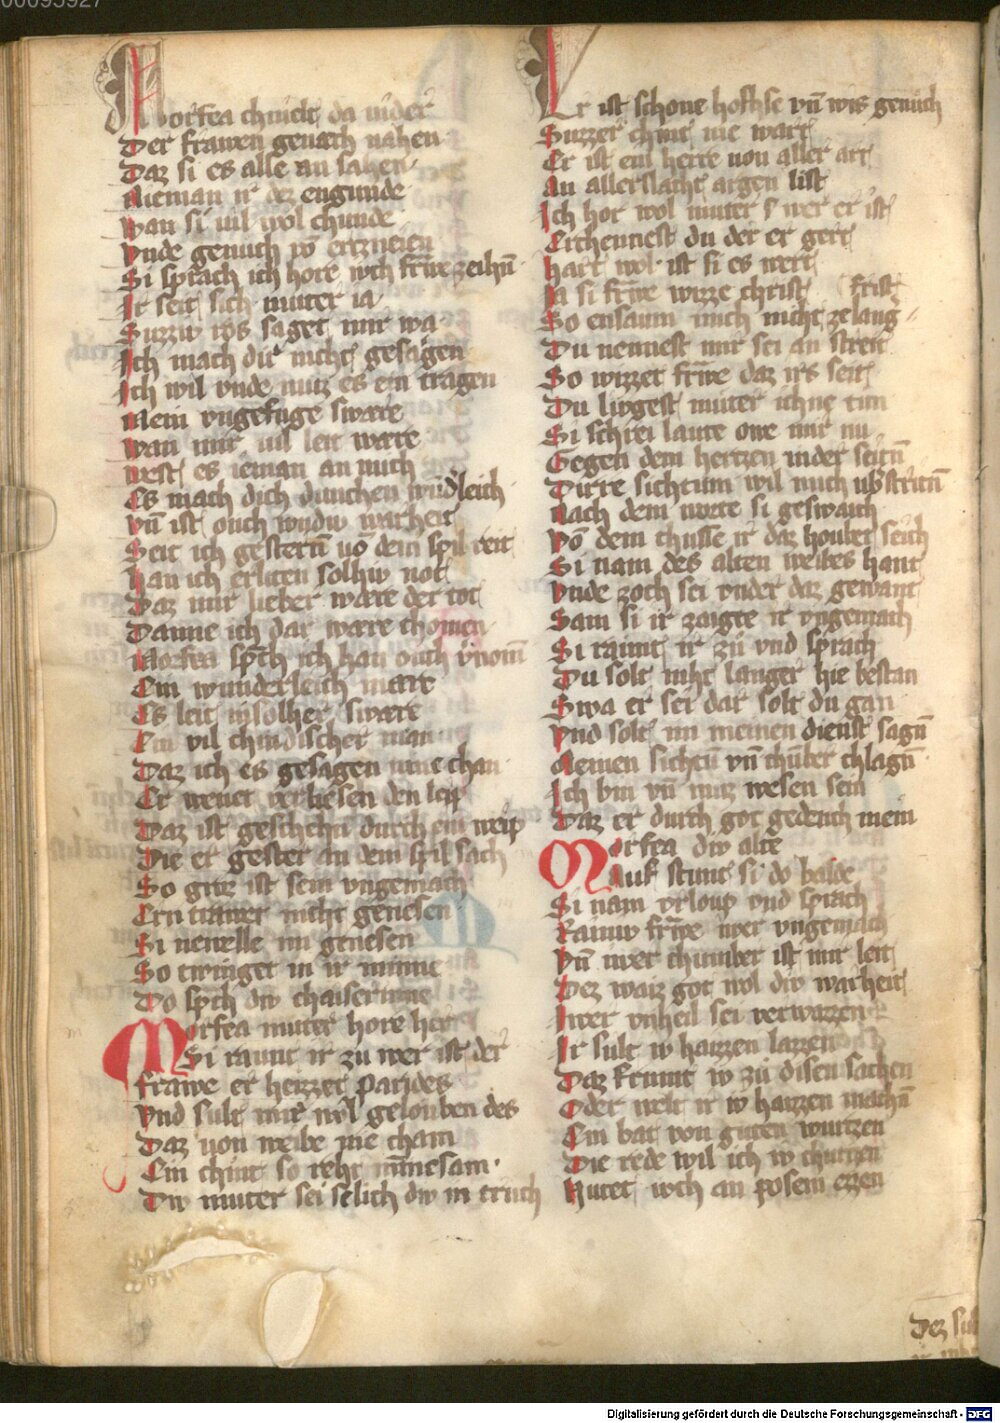 00095927
Morfea chniete da nider
Der frawen genath nahen
Daz si es alle an sahen
Nieman ir dez engunde
wan si vil wol chunde
vnde genuch vō ertzneien
Si sprach ich hore wch frǎwe zeihn̄
Ir seit sich muter ia
Suzziv wes saget mir wa
Ich mach dir nicht gesagen
Ich wil vnde muz es ein tragen
Mein vngefuge sware
wan mir vil leit ware
west es ieman an mich
Es mach dich dunchen wūdleich
vn̄ ist ouch wudiv warheit
Seit ich gestern̄ vō dem spil reit
han ich erliten solhiv not
Daz mir lieber ware der tot
Danne ich dar ware chomen
Morfea sp̄ch ich han ouch v̄nom̄
Ein wunderleich mare
Es leit in solher sware
Ein vil chindischer man
Daz ich es gesagen nine chan
Er wenet verliesen den leip
Daz ist geschehn̄ durch ein weip
Die er gester an dem spil sach
So groz ist sein vngemach
Ern trawet nicht genesen
Si newelle im genesen
So twinget in ir minne
Do sp̄ch div chaiserinne
Morfea muter hore her
Si raunt ir zu wer ist der
frawe er heizzet parides
vnd sult mir wol gelouben des
Daz von weibe nie cham
Ein chint so reht minnesam
Div muter sei selich div in truch
Er ist schone hofhse vn̄ wis genuch
Suzzer chint nie wart
Er ist ein herre von aller art
An allerslacht argen list
Ich hor wol muter s wer er ist
Erchennest du der er gert
hart wol ist si es wert
Ia si frǎwe wizze christ
frist
So ensaum mich nicht zelang
Du nennest mir sei an streit
So wizzet frǎwe daz irs seit
Du livgest muter ichne tun
Si schrei laute owe mir nu
Gegen dem hertzen in der seitn̄
Dirre sichtum wil mich vb̄stritn̄
Nach dem worte si geswaich
Vō dem chusse ir daz houbet seich
Si nam des alten weibes hant
Vnde zoch sei vnder daz gewant
Sam si ir zaigte ir vngemach
Si raunt ir zů vnd sprach
Du solt niht langer hie bestan
Swa er sei dar solt du gan
Vnd solt im meinen dienst sagn̄
Meinen sichtū vn̄ chūber chlagn̄
Ich bin vn̄ muz wesen sein
Daz er durch got gedench mein
Morfea div alte
Auf stunt si do balde
Si nam vrloup vnd sprach
Rainiv frǎwe iwer vngemach
Vn̄ iwer chumber ist mir leit
Dez waiz got wol div warheit
Iwer vnheil sei verwazzen
Ir sult iv haizzen lazzen
Daz frumt iv zů disen sachen
Oder welt ir iv haizzen machn̄
Ein bat von guten wurtzen
Die rede wil ich iv churtzen
Hutet wch an posem ezen
Dez sul